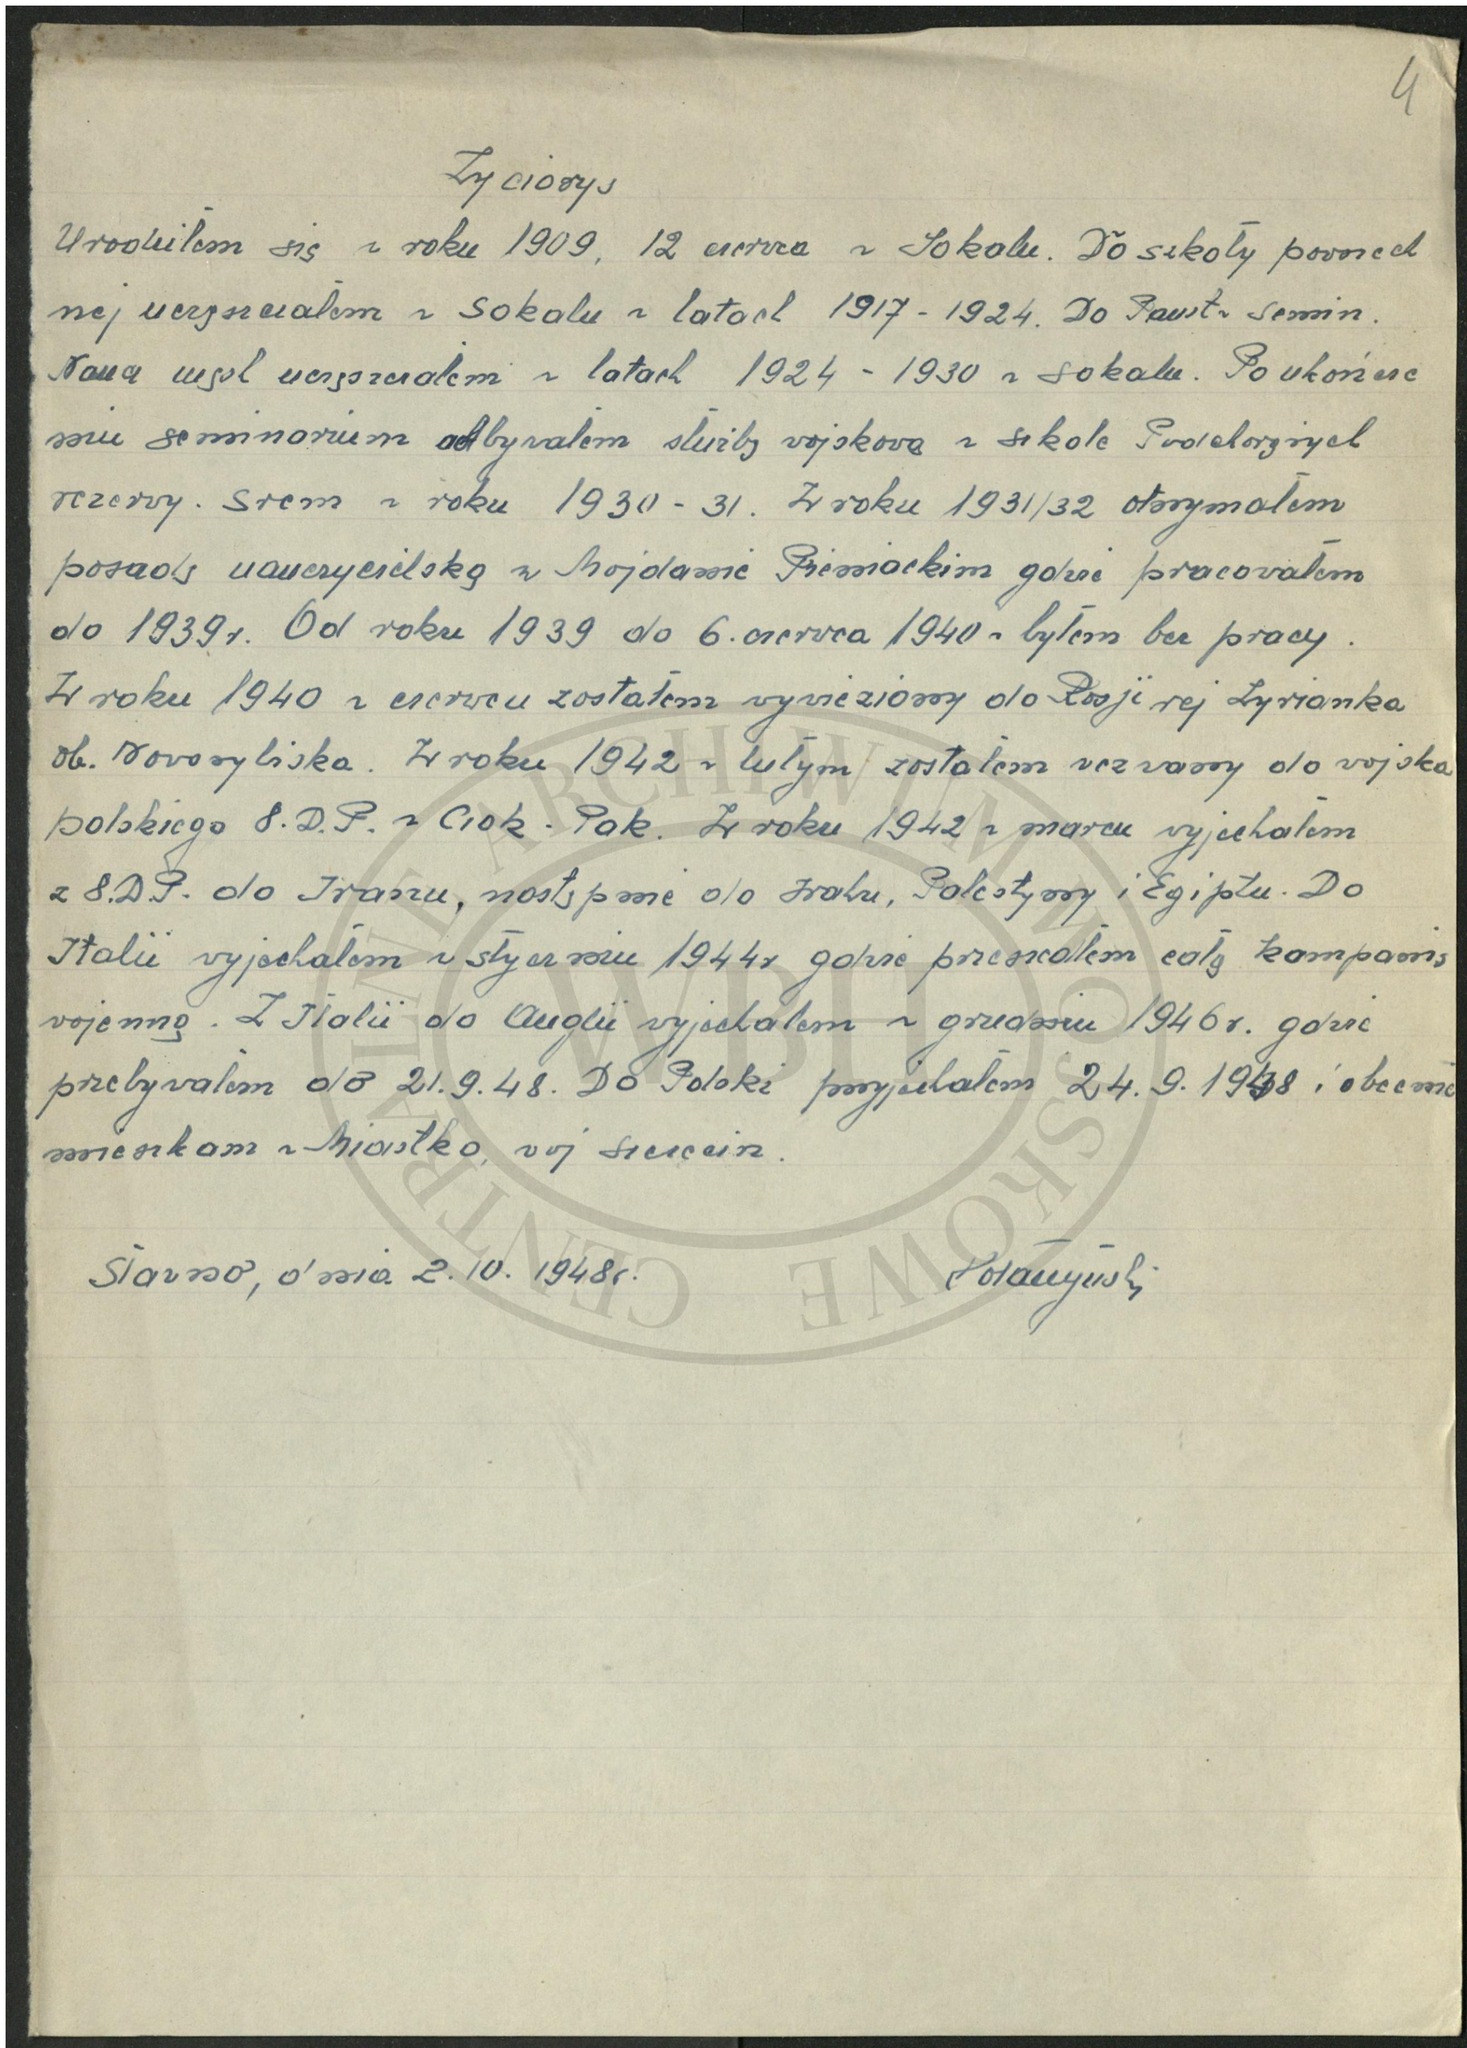 4
Życiorys
Urodziłem się w roku 1909, 12 czerwca w Sokalu. Do szkoły powszech
nej uczęszczałem w Sokalu w latach 1917 - 1924. Do Państw semin.
Naucz uczęszczałem w latach 1924 - 1930 w Sokalu. Po ukończe
niu seminarium odbywałem służbę wojskową w szkole Podchorążych
rezerwy. Srem w roku 1930 - 31. W roku 1931/32 otrzymałem
posadę nauczycielską w Majdanie Pieniackim gdzie pracowałem
do 1939 r. Od roku 1939 do 6. czerwca 1940 r byłem bez pracy.
W roku 1940 w czerwcu zostałem wywieziony do Rosji rej Zyrianka
ob. Nowosybiska. W roku 1942 w lutym zostałem wezwany do wojska
polskiego 8. D.P. w Czok - Pak. W roku 1942 w marcu wyjechałem
z 8.D.P. do Iranu, następnie do Iraku, Palestyny i Egiptu. Do
Italii wyjechałem w styczniu 1944 r gdzie przeszedłem całą kampanię
wojenną. Z Italii do Anglii wyjechałem w grudniu 1946 r. gdzie
przebywałem do 21.9.48. Do Polski przyjechałem 24.9.1948 i obecnie
mieszkam w Miastko, woj Szczecin.
Sławno, dnia 2.10.1948 r.
CENTRALNE ARCHIWUM WOJSKOWE
WBH